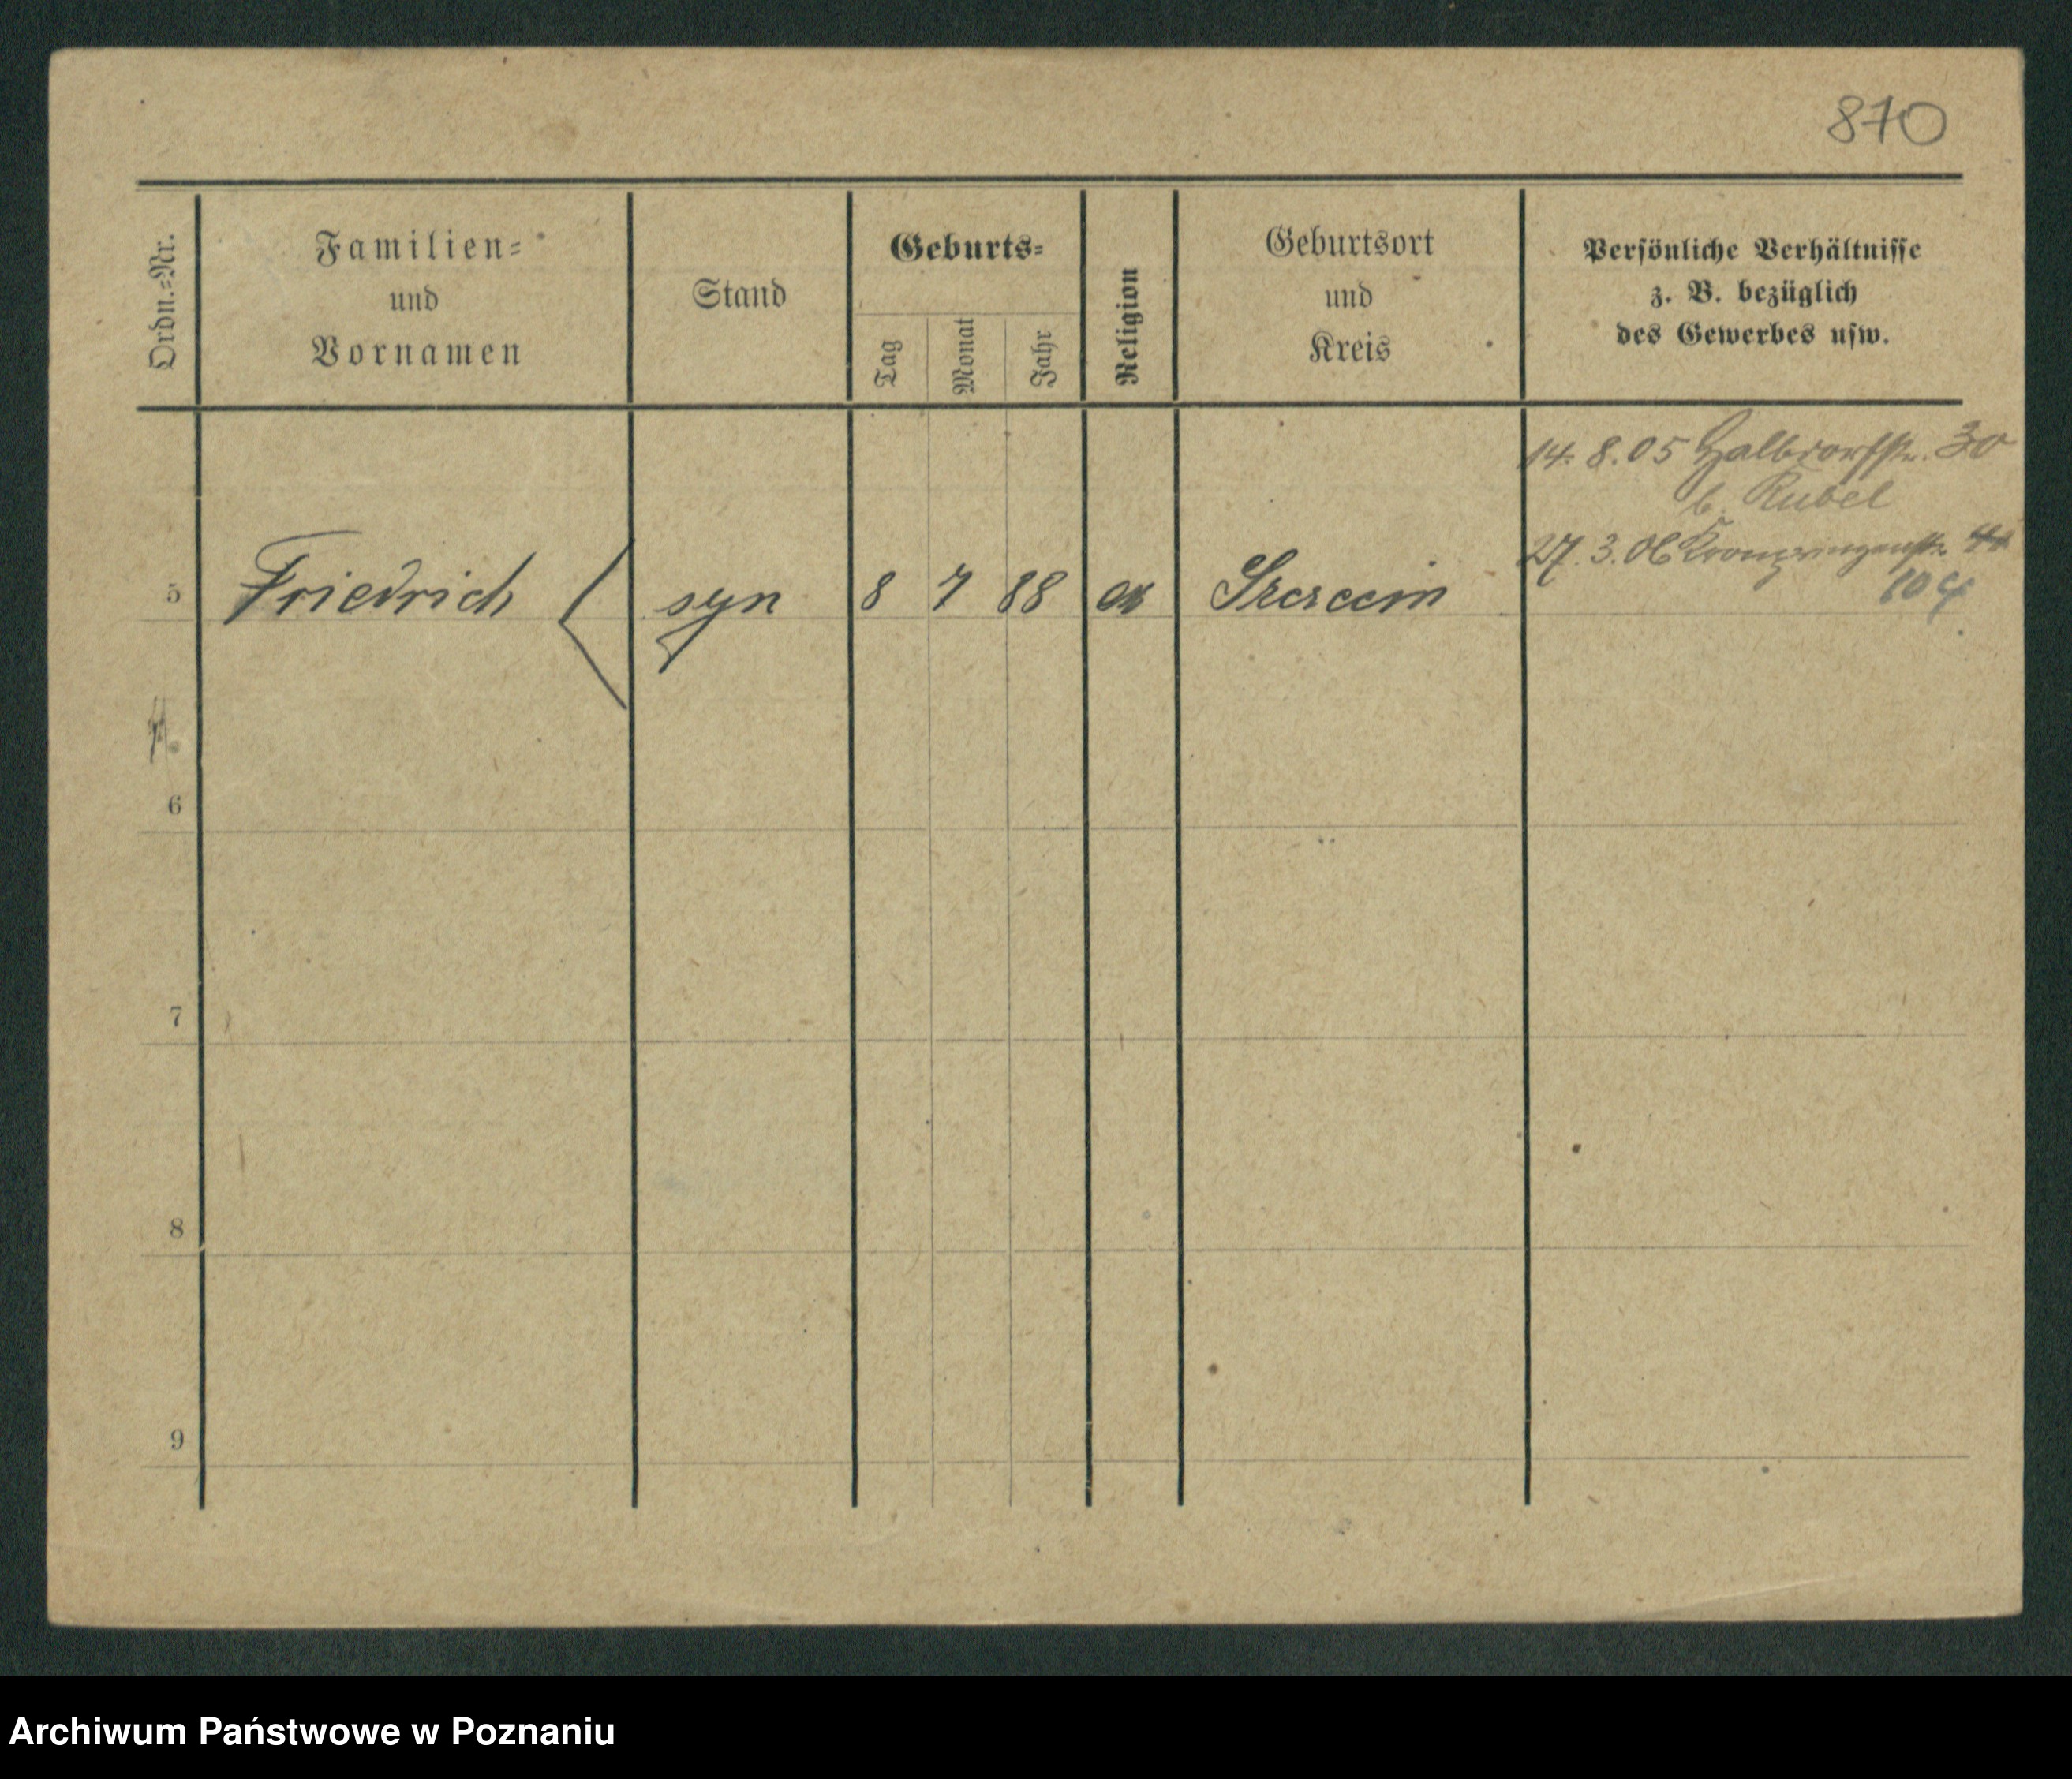 870
Ordn.-Nr.
Familien-
und
Vornamen
Stand
Geburts-
Tag
Monat
Jahr
Religion
Geburtsort
und
Kreis
Persönliche Verhältnisse
z. B. bezüglich
des Gewerbes usw.
14. 8. 05 30
b. Rubel
27. 3. 06 Kronprinzenstr.
104
5 Friedrich syn 8 7 88
6
7
8
9
Archiwum Państwowe w Poznaniu